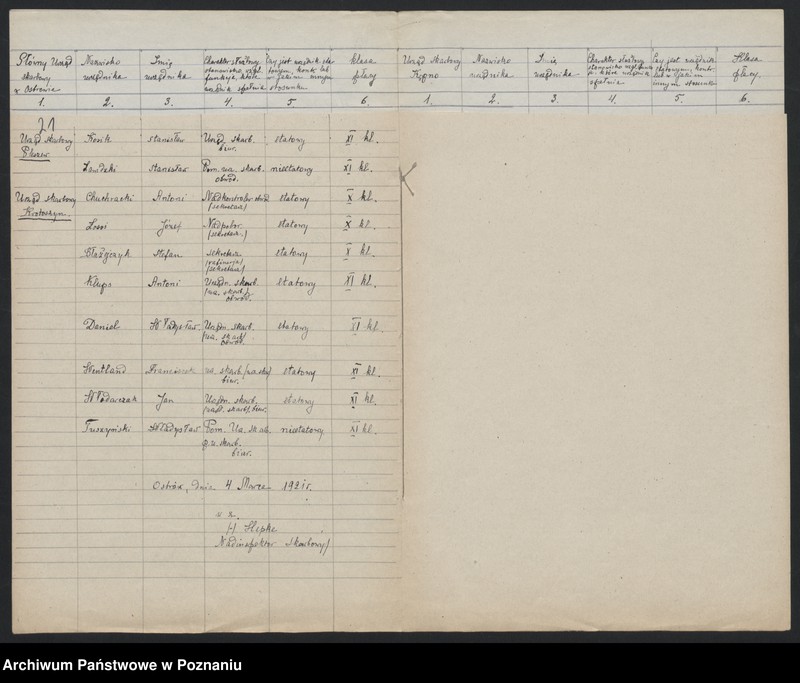 Główny Urząd skarbowy w Ostrowie
Nazwisko urzędnika
Imię urzędnika
Charakter służbowy stanowisko wzgl. funkcja, które urzędnik spełnia
Czy jest urzędnik etatowym, kontr. lub w jakim innym stosunku
klasa płacy
Urząd Skarbowy Kępno
Nazwisko urzędnika
Imię urzędnika
Charakter służbowy stanowisko urzędnik spełnia
Czy jest urzędnik etatowym, kontr. lub w jakim innym stosunku
Klasa płacy
1. 2. 3. 4. 5 6. 1. 2. 3. 4. 5. 6.
21
Urząd skarbowy Kosik stanisław Urzęd. skarb. etatowy XI kl.
Pleszew biur.
Stanisław Pom. urz. skarb. nieetatowy XI kl.
obwod.
Urząd skarbowy Chuchracki Antoni Nadkontroler obwod etatowy X kl.
Krotoszyn. /sekretarz/
Łoś Józef Nadpobor. etatowy X kl.
/sekretarz/
Błaszczyk Stefan sekretarz etatowy X kl.
/sekretarz/
Klups Antoni Urzędn. skarb. etatowy XI kl.
/urz. skarb./
obwod.
Daniel Władysław Urzędn. skarb. etatowy XI kl.
/urz. skarb/
obwod.
Wentland Franciszek urz. skarb. etatowy XI kl.
biur.
Włodarczak Jan Urzędn. skarb. etatowy XI kl.
/urzęd. skarb/ biur.
Tuszyński Władysław Pom. Urz. skarb. nieetatowy XI kl.
skarb.
biur.
Ostrów, dnia 4 Marca 1921 r.
w z.
/-/ Hepke
Nadinspektor skarbowy/
Archiwum Państwowe w Poznaniu